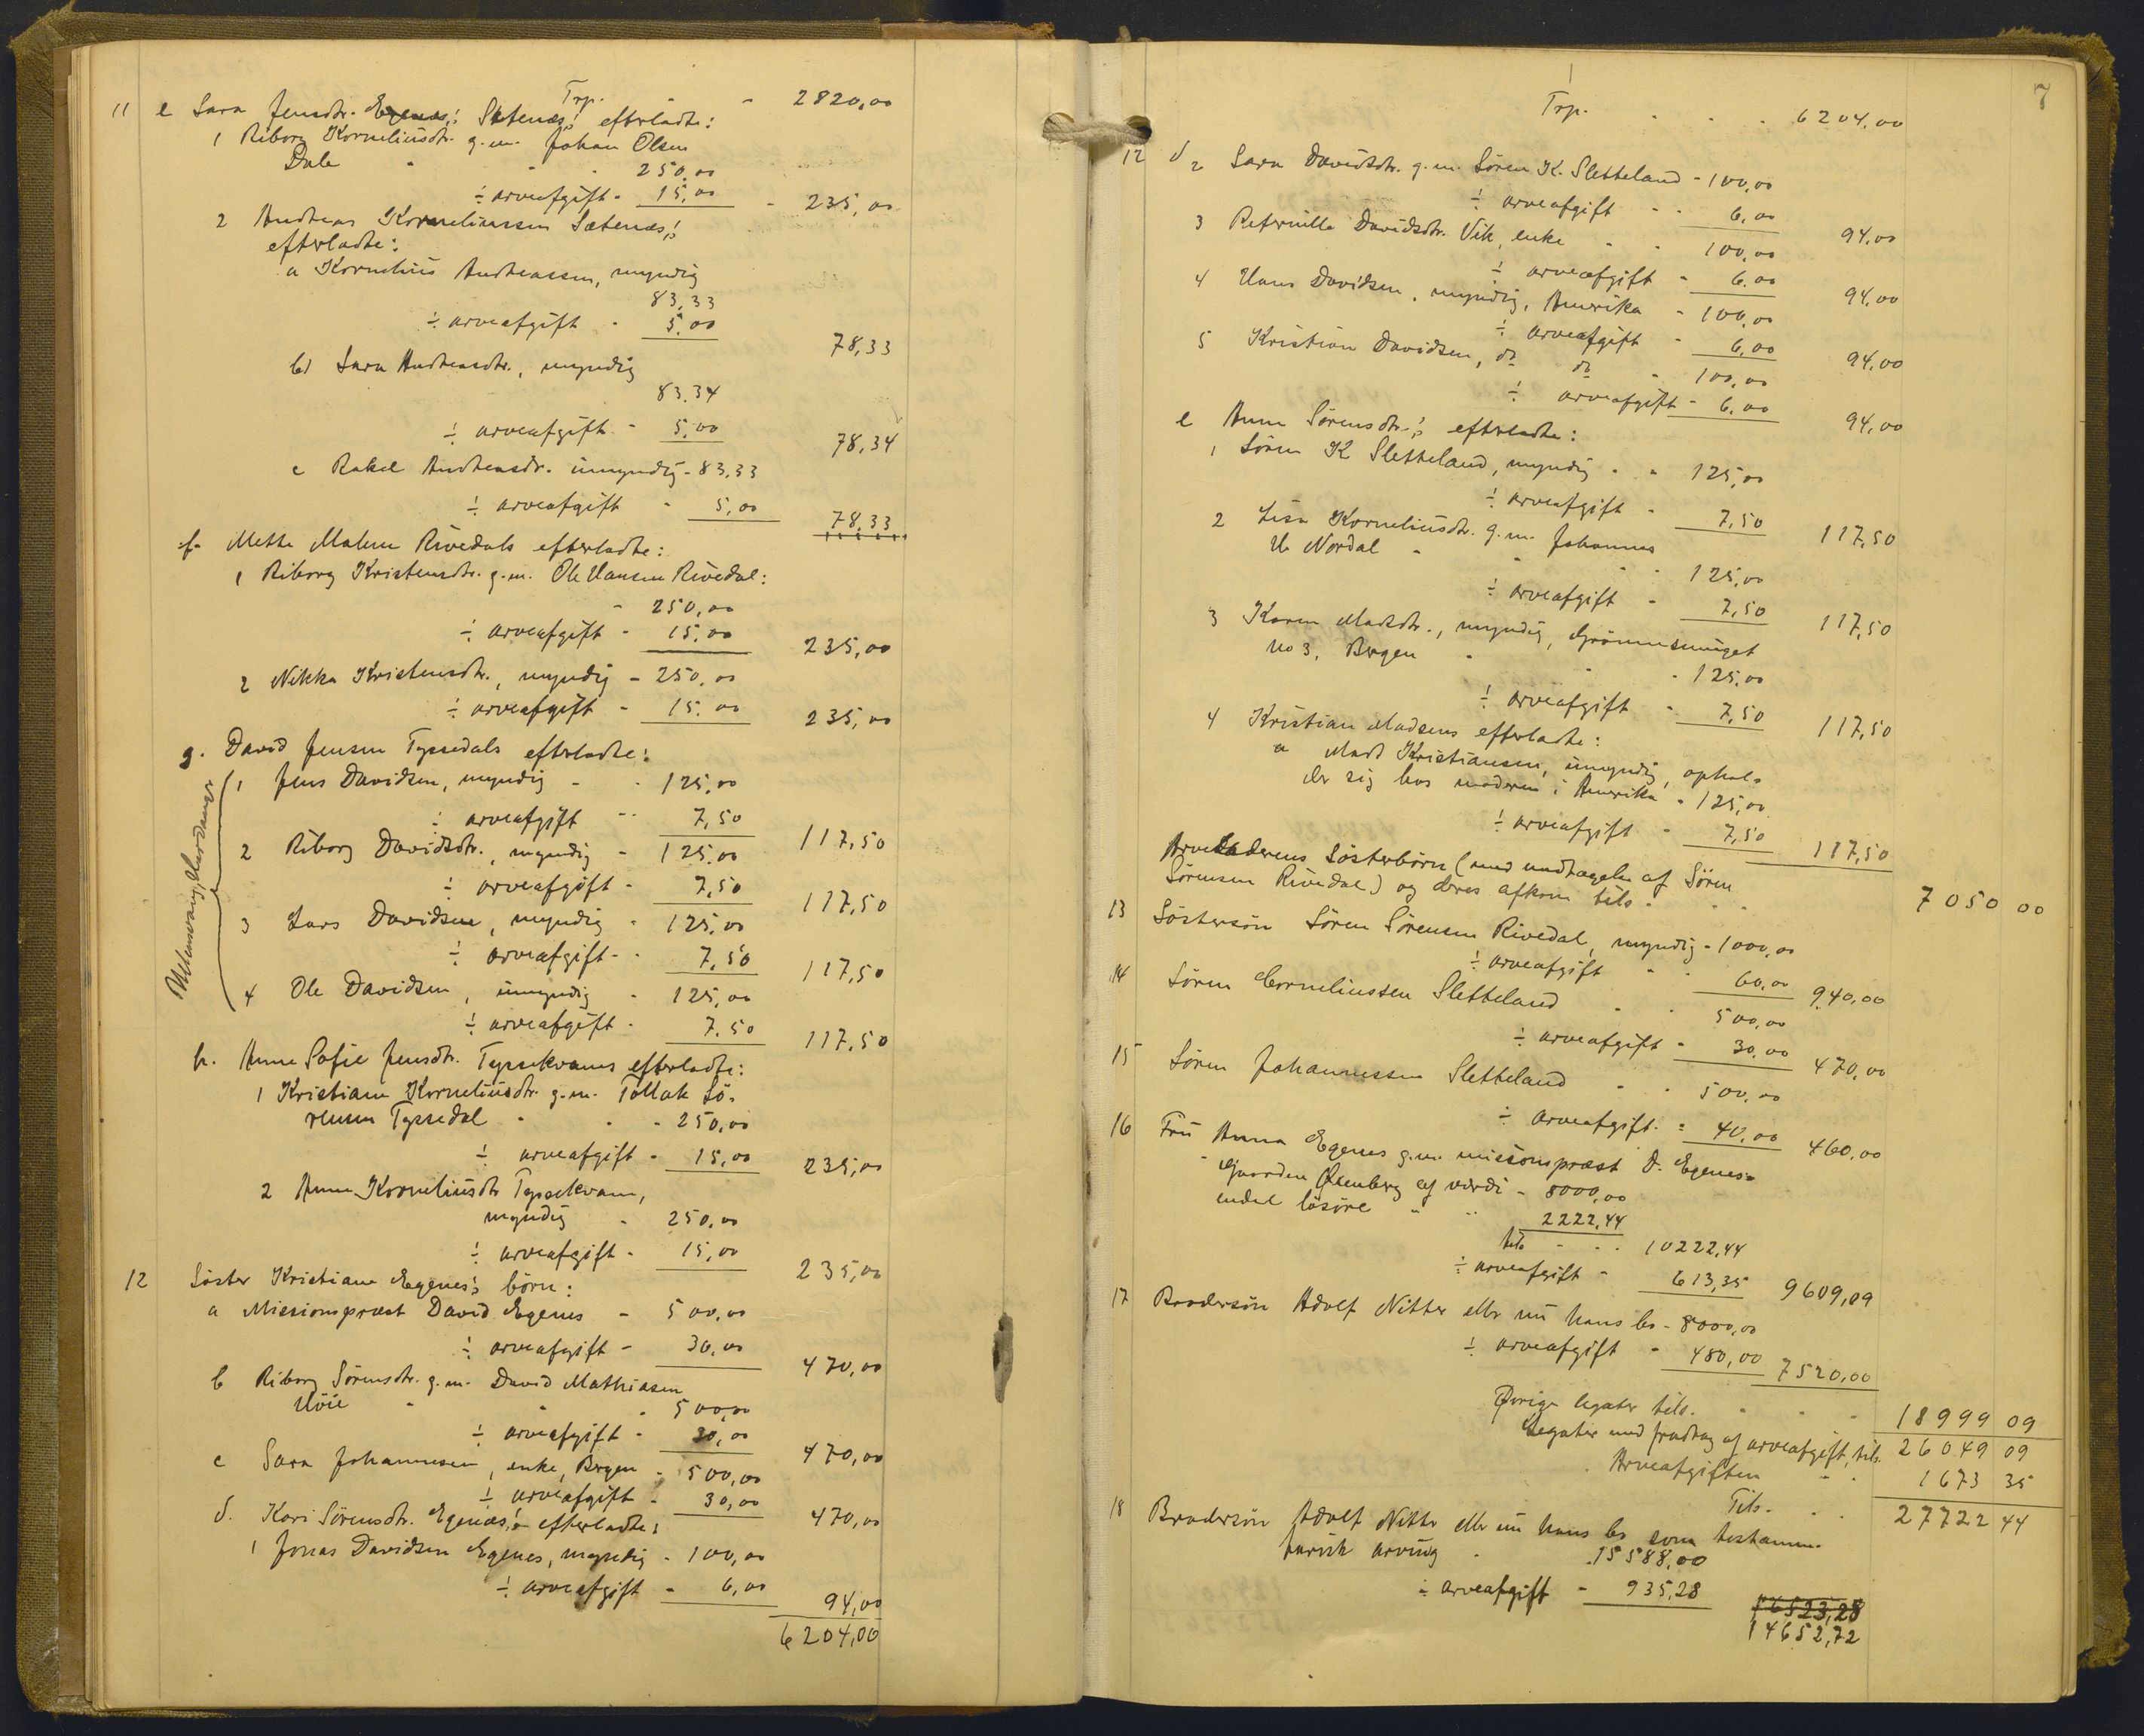 Trp. - - 2820,00
11 e Sara Jensdr. Egenes,: Sætenæs,! efterladte:
1 Riborg Korneliusdr. g.m. Johan Olsen
Dale - - - 250,00
÷ arveafgift - 15,00 - 235,00
2 Andreas Korneliussen Sætenæs,!
efterladte:
a Kornelius Andreassen, myndig
83,33
÷ arveafgift - 5,00
78,33
b) Sara Andreasdtr., myndig
83,34
÷ arveafgift - 5,00
78,34
c Rakel Andreasdr. umyndig - 83,33
÷ arveafgift - 5,00
78,33
f. Mette Malene Rivedals efterladte:
1 Riborg Kristensdr. g.m. Ole Hansen Rivedal:
- 250,00
÷ arveafgift - 15,00
235,00
2 Nikka Kristensdtr., myndig - 250,00
÷ arveafgift - 15,00
235,00
g. David Jensen Tyssedals efterladte:
1 Jens Davidsen, myndig - - 125,00
÷ arveafgift - - 7,50
117,50
2 Riborg Davidsdtr., myndig - 125,00
÷ arveafgift - 7,50
117,50
3 Lars Davidsen, myndig - 125,00
÷ arveafgift - - 7,50
117,50
4 Ole Davidsen, umyndig - 125,00
÷ arveafgift - 7,50
117,50
h. Anne Sofie Jensdtr. Tyssekvams efterladte:
1 Kristiane Korneliusdtr. g.m. Tollak Sö-
rensen Tyssedal - - - 250,00
÷ arveafgift - 15,00
235,00
2 Anne Korneliusdtr Tyssekvam,
myndig - 250,00
÷ arveafgift - 15,00
235,00
12 Söster Kristiane Egenes,s börn:
a Missionsprest David Egenes - 500,00
÷ arveafgift - 30,00
470,00
b Riborg Sörensdtr. g.m. David Mathiasen
Höie - - - 500,00
÷ arveafgift - 30,00
470,00
c Sara Johannesen, enke, Bergen - 500,00
÷ arveafgift - 30,00
470,00
d. Kari Sörensdtr. Egenæs,! efterladte:
1 Jonas Davidsen Egenes, myndig - 100,00
÷ arveafgift - 6,00
94,00
6204,00
7
Trp. - - - 6204,00
12 d 2 Sara Davidsdtr. g.m. Sören K. Sletteland - 100,00
÷ arveafgift - - 6,00
94,00
3 Peternille Davidsdtr. Vik, enke - - 100,00
÷ arveafgift - 6,00
94,00
4 Hans Davidsen, myndig, Amerika - 100,00
÷ arveafgift - 6,00
94,00
5 Kristian Davidsen, do do - 100,00
÷ arveafgift - 6,00
94,00
e Anne Sörensdtr,! efterladte:
1 Sören K Sletteland, myndig - - 125,00
÷ arveafgift - 7,50
117,50
2 Lisa Korneliusdtr. g.m. Johannes
H. Nordal - - - 125,00
÷ arveafgift - 7,50
117,50
3 Karen Madsdtr., myndig, Grönnesmuget
No 3, Bergen - - - 125,00
÷ arveafgift - 7,50
117,50
4 Kristian Madsens efterladte:
a Mads Kristiansen, umyndig, ophol-
der sig hos moderen i Amerika - 125,00
÷ arveafgift - 7,50
117,50
Arveladerens Sösterbörn (med undtagelse af Sören
Sörensen Rivedal) og deres afkom tils. - - 7050 00
13 Söstersön Sören Sörensen Rivedal, myndig - 1000,00
÷ arveafgift - - 60,00
940,00
14 Sören Corneliussen Sletteland - - 500,00
÷ arveafgift - 30,00
470,00
15 Sören Johannessen Sletteland - - 500,00
÷ arveafgift - 40,00
460,00
16 Fru Anna Egenes g.m. missionsprest D. Egenes -
- Gaarden Ølenberg af verdi - 8000,00
endel lösöre - - 2222,44
tils - - - 10222,44
÷ arveafgift - 613,35
9609,09
17 Brodersön Adolf Nitter eller nu hans bo - 8000,00
÷ arveafgift - 480,00
7520,00
Øvrige legater tils. - - - 18999 09
Legater med fradrag af arveafgift, tils. 26049 09
Arveafgiften - - 1673 35
Tils. - - 27722 44
18 Brodersön Adolf Nitter eller nu hans bo som testamen-
tarisk arving - 15588,00
÷ arveafgift - 935,28
16523,28
14652,72